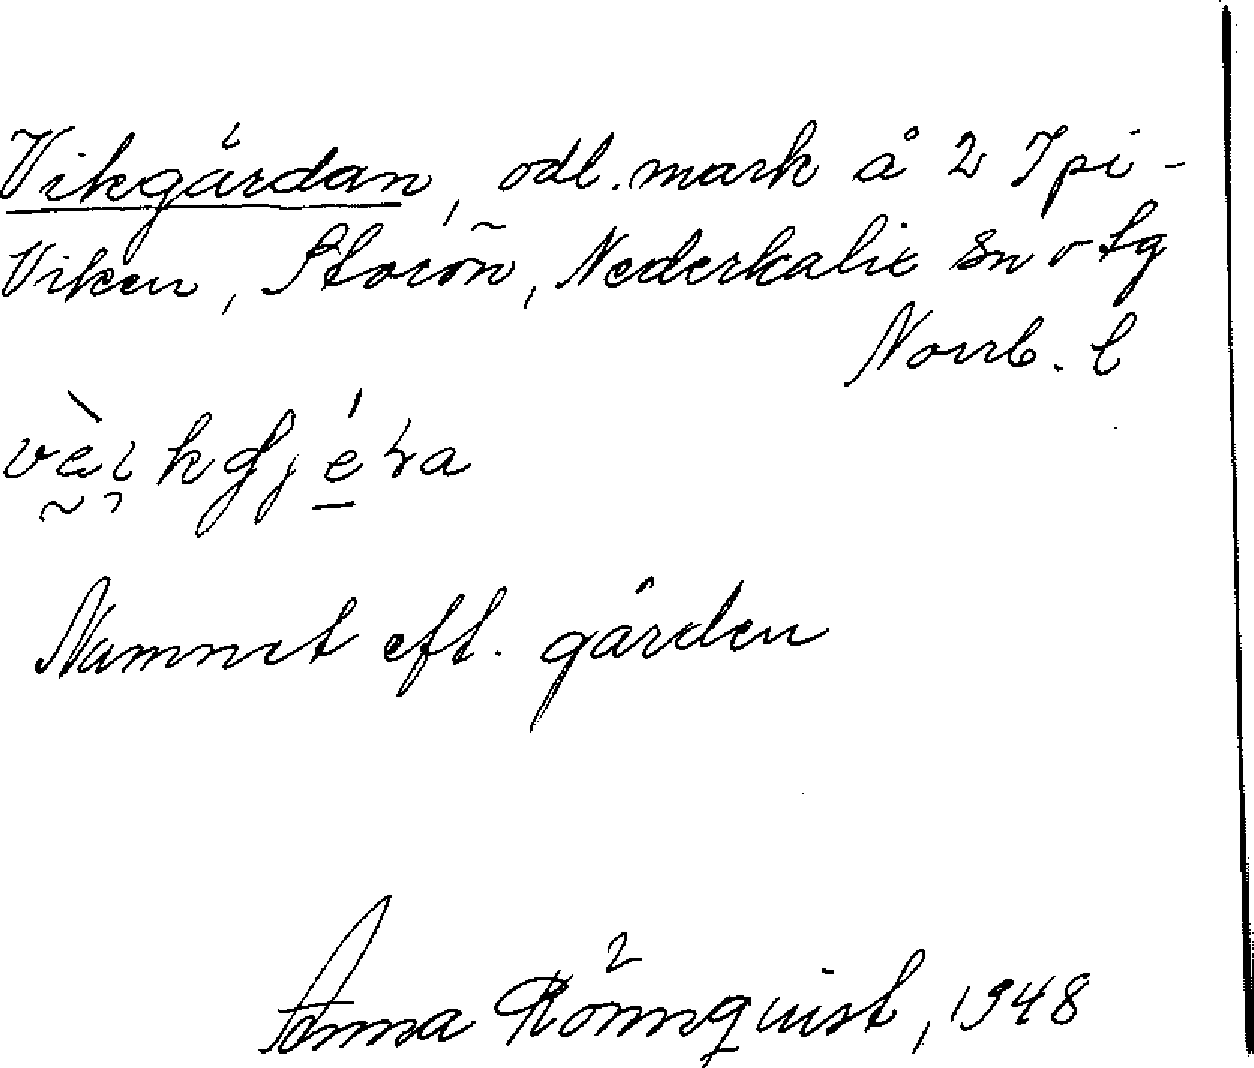 Vikgärdan, odl. mark å 2 I pi-
Viken, Storön, Nederkalix sn o tg
Norrb. l
Namnet eft. gården
Anna Rönnquist, 1948